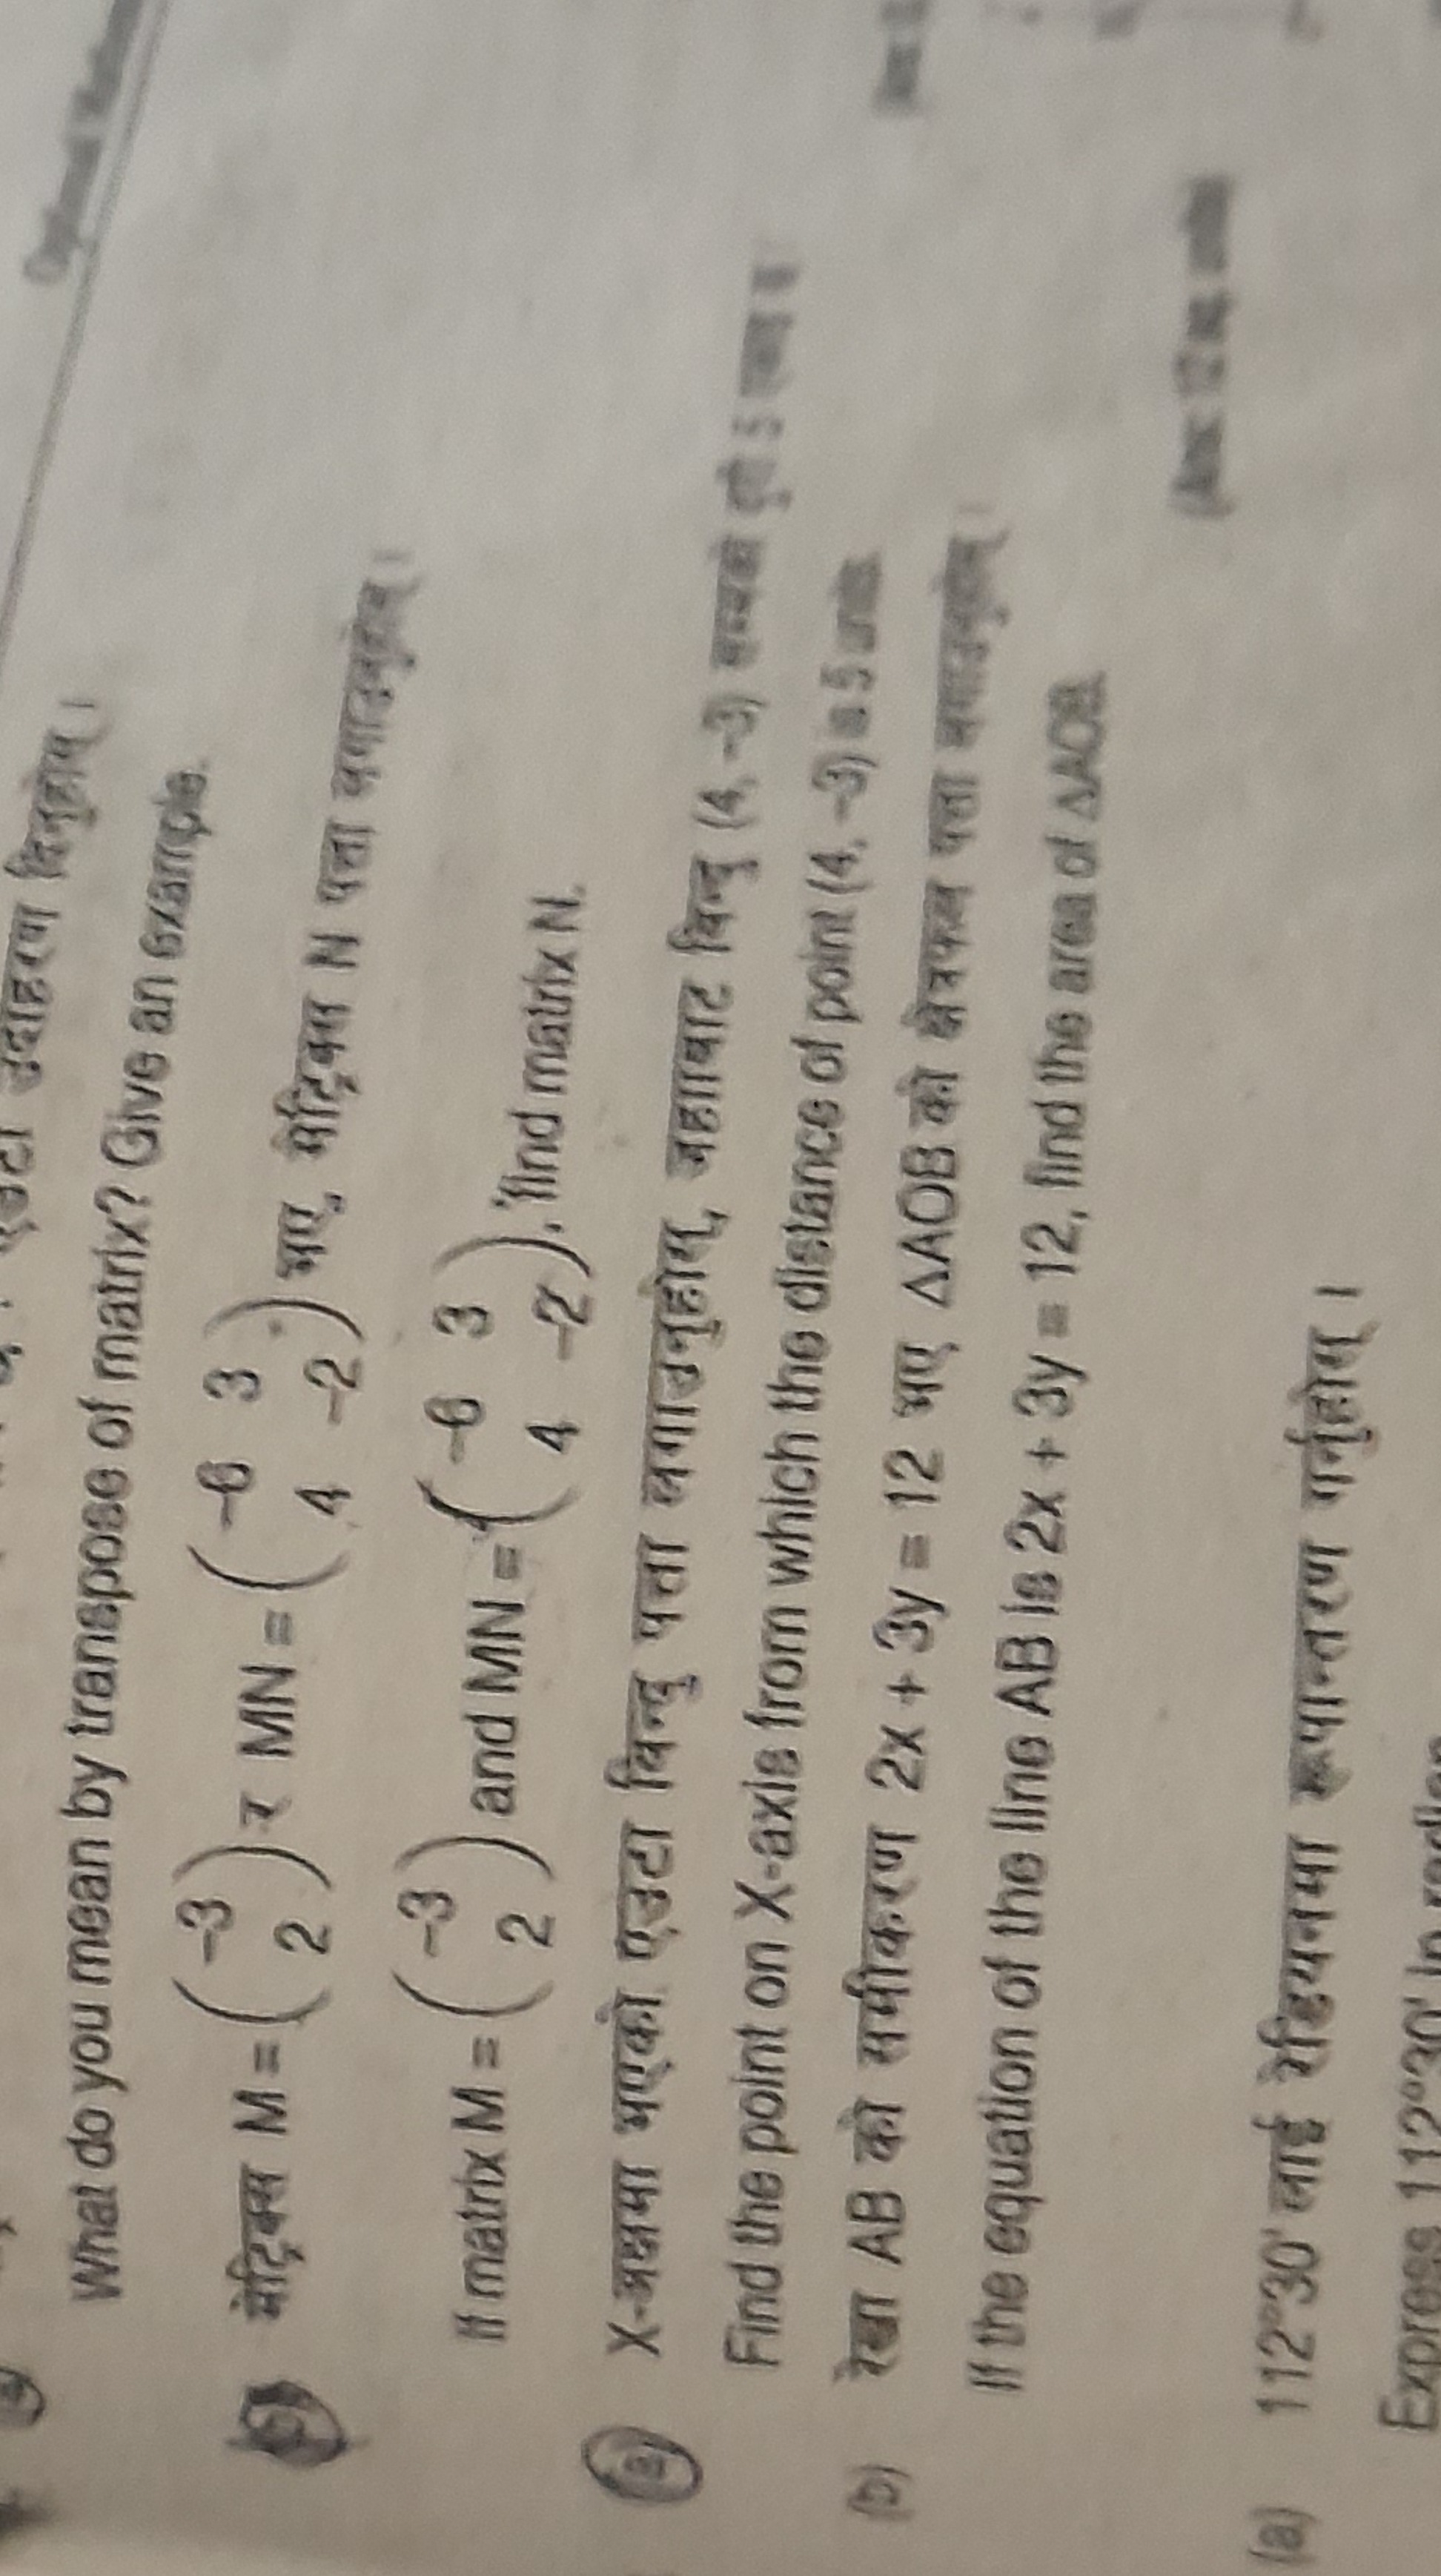 उदाहरण दिनुहोस् ।
What do you mean by transpose of matrix? Give an example.
मेट्रिक्स M = (-3 2) र MN = (-6 3 4 -2) भए, मेट्रिक्स N पत्ता लगाउनुहोस् ।
If matrix M = (-3 2) and MN = (-6 3 4 -2), find matrix N.
(a) X-अक्षमा भएको एउटा बिन्दु पत्ता लगाउनुहोस्, जहाबाट बिन्दु (4, -3) सम्मको दूरी 5 एकाइ छ
Find the point on X-axis from which the distance of point (4, -3) is 5 units.
(b) रेखा AB को समीकरण 2x + 3y = 12 भए ΔAOB को क्षेत्रफल पत्ता लगाउनुहोस् ।
If the equation of the line AB is 2x + 3y = 12, find the area of ΔAOB.
(Ans: 12 sq. units)
(a) 112°30' लाई रेडियनमा रूपान्तरण गर्नुहोस् ।
Express 112°30' in radian